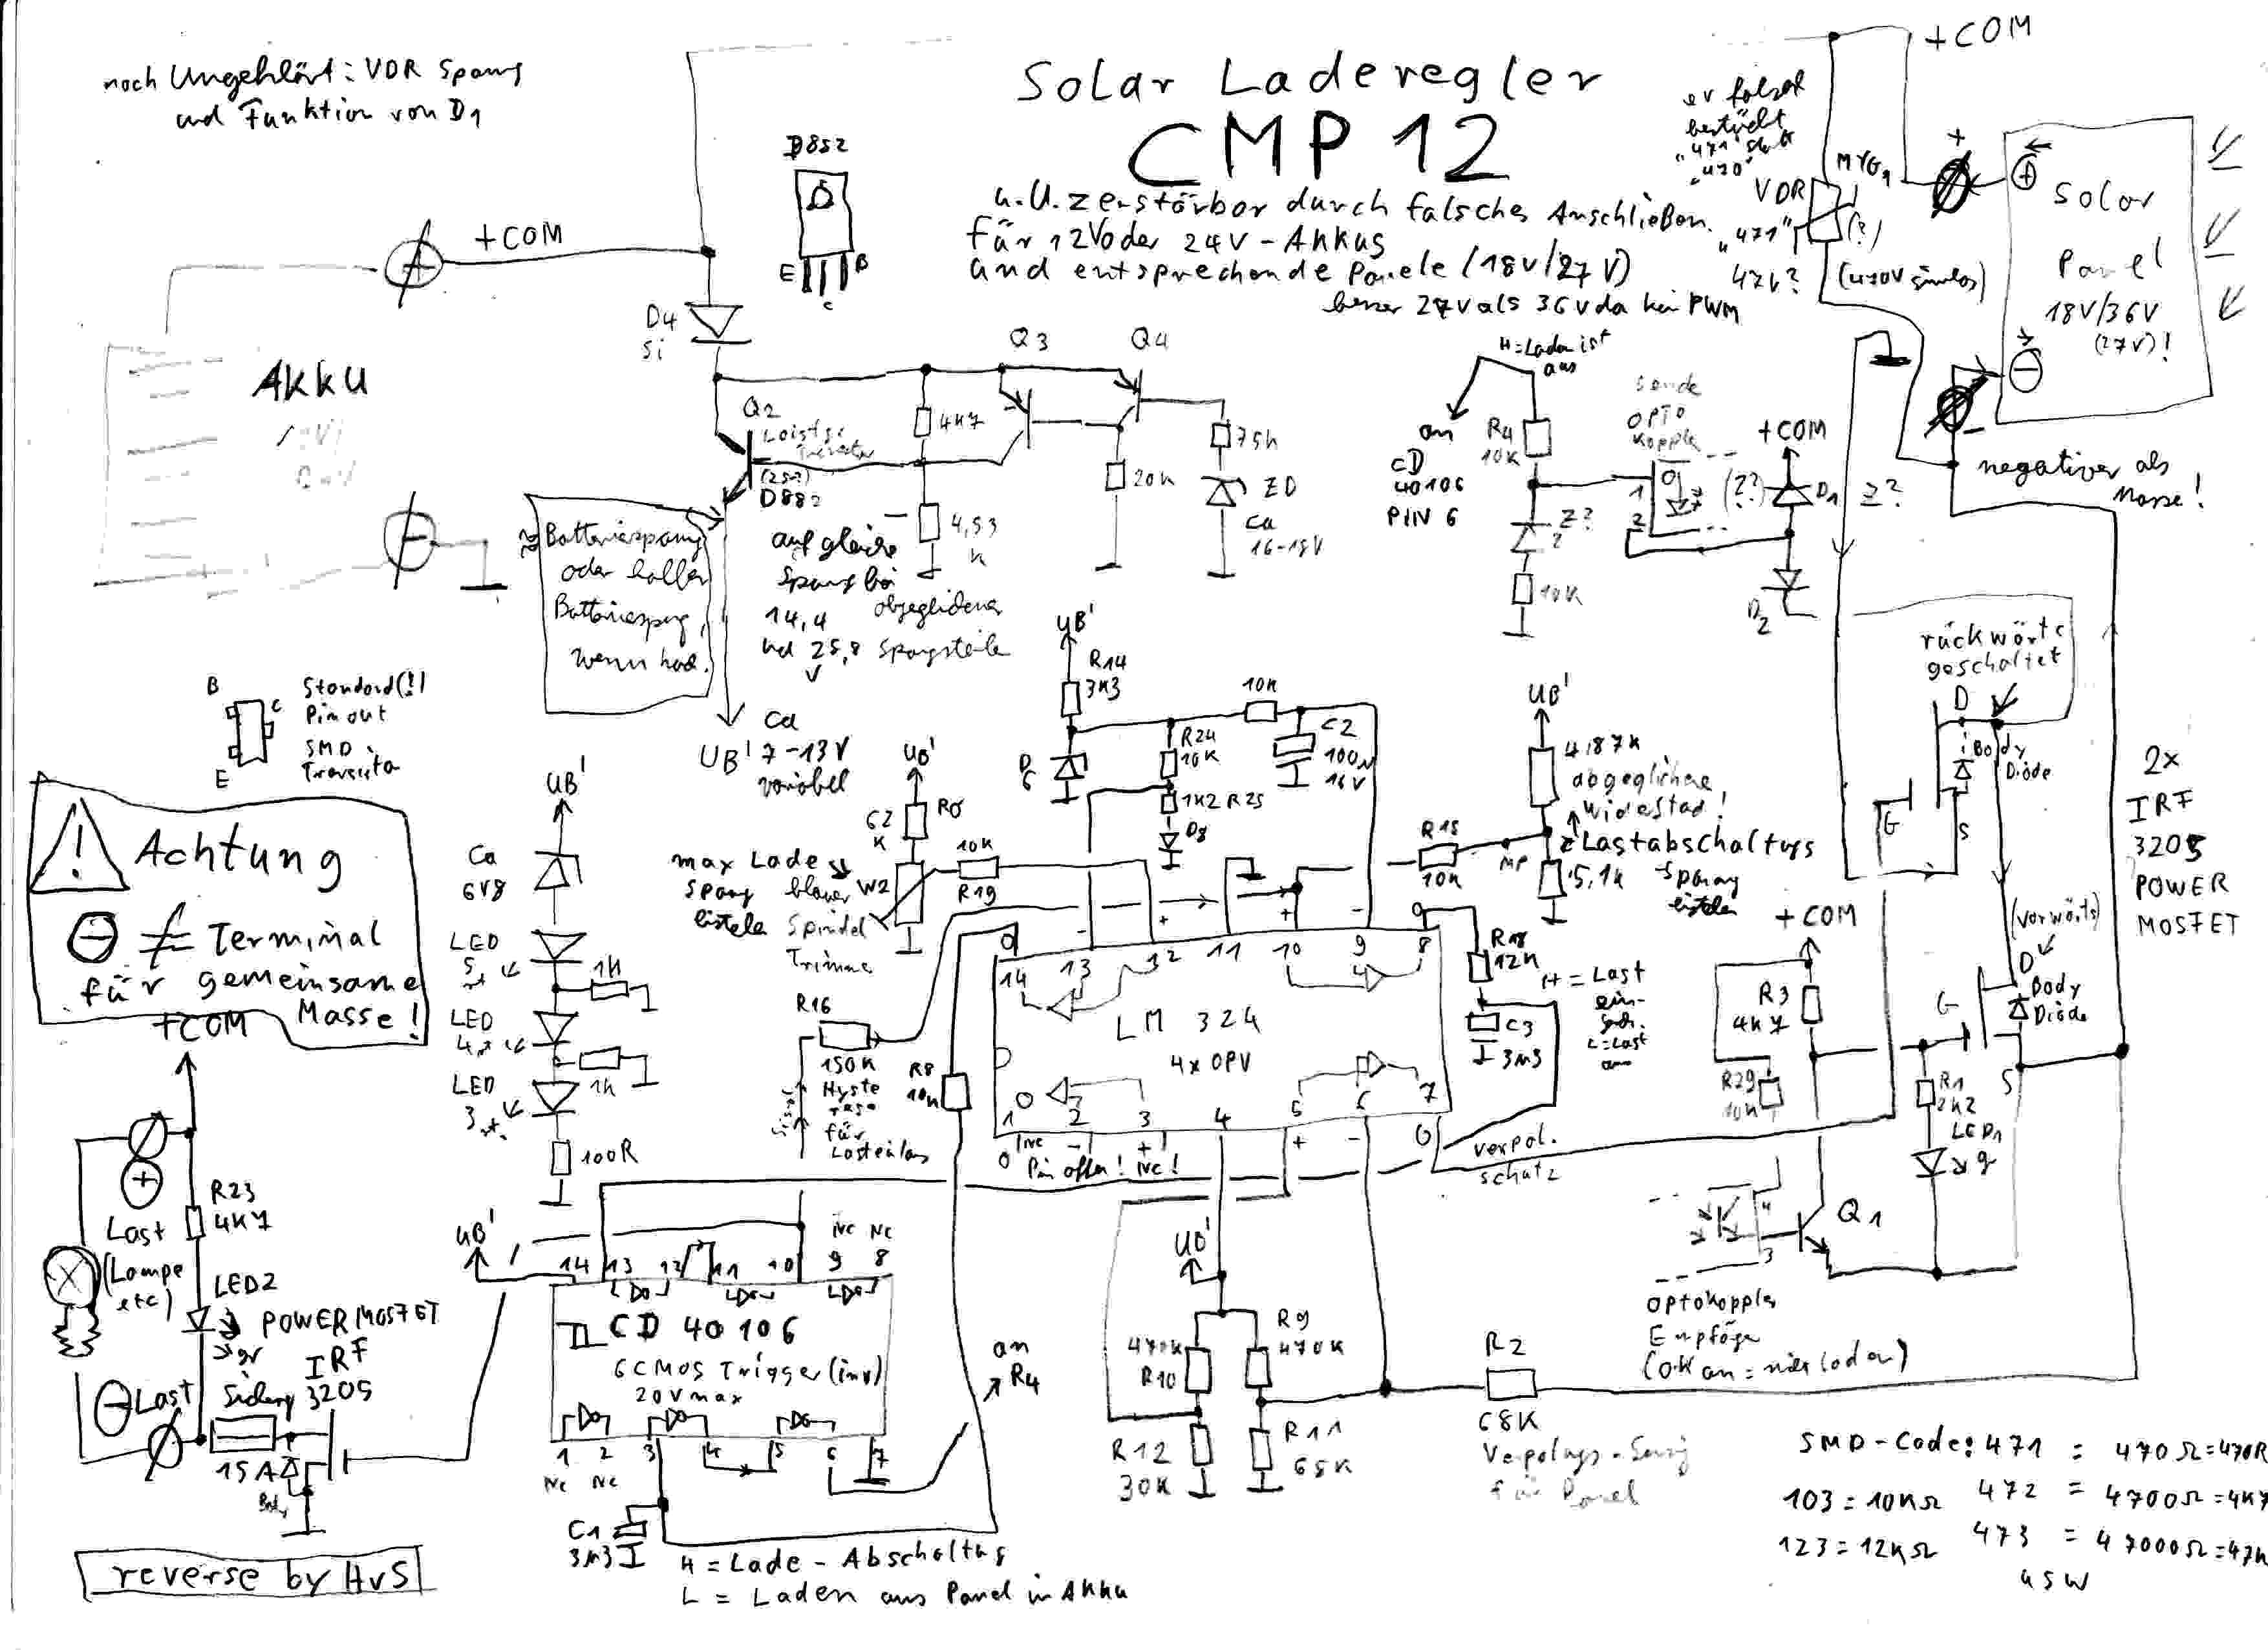 noch Ungeklärt: VDR Spanng
und Funktion von D1
Solar Laderegler
CMP 12
u.U. zerstörbar durch falsches Anschließen.
für 12V oder 24V-Akkus
und entsprechende Panele (18V/27V)
besser 27V als 36V da kein PWM
+COM
er falsch
bestückt
"471" statt
"470"
MYG1
VDR
"471"
(?)
47V?
(470V sinnlos)
+
Solar
Panel
18V/36V
(27V)!
-
negativer als
Masse!
D852
E
C
B
+COM
+
Akku
-
D4
Si
Q2
Leistgs
Transistor
(2S?)
D882
4K7
Q3
Q4
20K
75K
ZD
ca
16-18V
4,53
K
≈ Batteriespanng
oder halber
Batteriespng,
wenn hoch.
auf gleiche
Spang bei
14,4
und 25,8
V
abgeglichener
Spangsteiler
ca
UB' 7-13V
variabel
H=Laden ist
aus
an
CD
40106
PIN 6
R4
10K
Z?
10K
Sende
OPTO
Koppler
1
2
(Z?)
+COM
D1
Z?
D2
rückwärts
geschaltet
D
Body
Diode
G
S
2x
IRF
3205
POWER
MOSFET
(vorwärts)
D
Body
Diode
G
S
B
C
E
Standard(!)
Pinout
SMD
Transistor
Achtung
⊖ ≠ Terminal
für gemeinsame
Masse!
UB'
Ca
6V8
LED
5
1K
LED
4
1K
LED
3
100R
UB'
R14
3K3
D6
R24
10K
1K2 R25
D8
10K
C2
100µ
16V
UB'
62
K
R6
max Lade
Spang
blauer
Spindel
Trimmer
W2
10K
R19
UB'
4,87K
abgeglichener
Widerstand!
Lastabschaltgs
Spanng
MP
R15
10K
5,1K
14
13
12
11
10
9
8
LM 324
4x OPV
1
2
3
4
5
6
7
Pin offen!
NC!
R16
150K
Hyste
rese
für
Lasteinlass
R8
10K
R18
12K
C3
3µ3
H = Last
ein-
gesch.
L=Last
aus
verpol.
schutz
+COM
R3
4K7
R29
10K
R1
2K2
LED1
Q1
4
3
Optokoppler
Empfänger
(OK an = nicht laden)
+COM
+
Last
(Lampe
etc)
R23
4K7
LED2
gr
POWER MOSFET
IRF
3205
- Last
Sicherg
15A
Body
UB'
14
13
12
11
10
9
8
NC NC
CD 40106
6 CMOS Trigger (inv)
20V max
1
2
3
4
5
6
7
NC NC
an
R4
C1
3µ3
H = Lade-Abschaltng
L = Laden aus Panel in Akku
UB'
470K
R10
R9
470K
R12
30K
R11
65K
R2
68K
Verpolngs-Sensg
für Panel
SMD-Code: 471 = 470Ω=470R
103=10KΩ 472 = 4700Ω=4K7
123=12KΩ 473 = 47000Ω=47K
usw
reverse by HvS